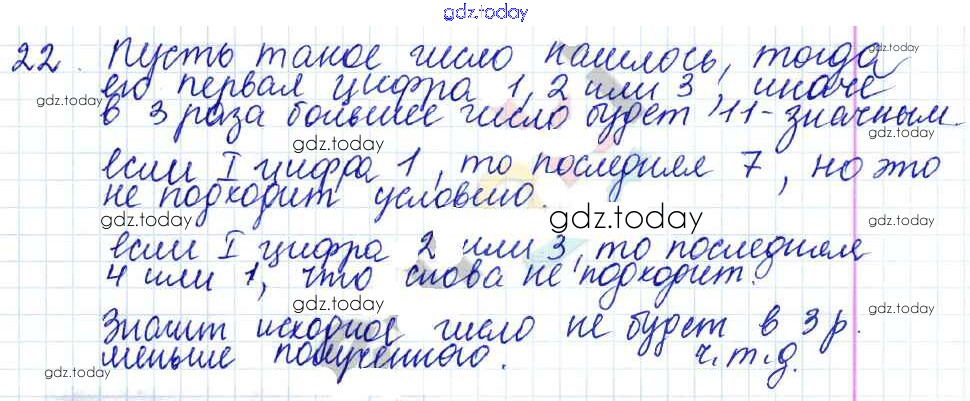 gdz.today
22. Пусть такое число нашлось, тогда
его первая цифра 1, 2 или 3, иначе
в 3 раза большее число будет 11-значным.
если I цифра 1, то последняя 7, но это
не подходит условию.
gdz.today
если I цифра 2 или 3, то последняя
4 или 1, что снова не подходит.
Значит исходное число не будет в 3 р.
меньше полученного. ч.т.д.
gdz.today
gdz.today
gdz.today
gdz.today
gdz.today
gdz.today
gdz.today
gdz.today